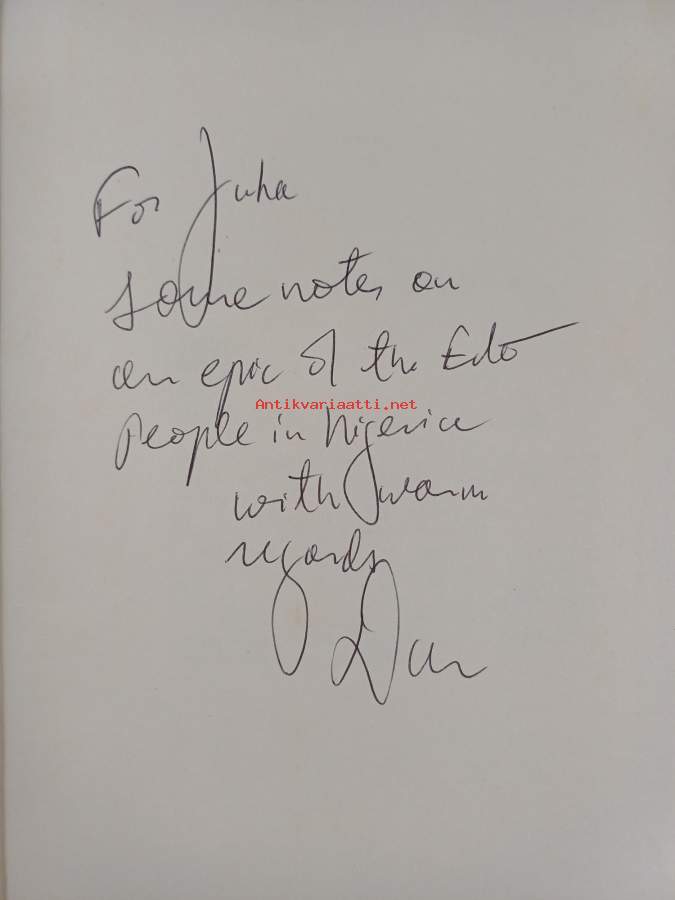 For Juha
some notes on
an epic of the Edo
Antikvariaatti.net
People in Nigeria
with warm
regards
Dan